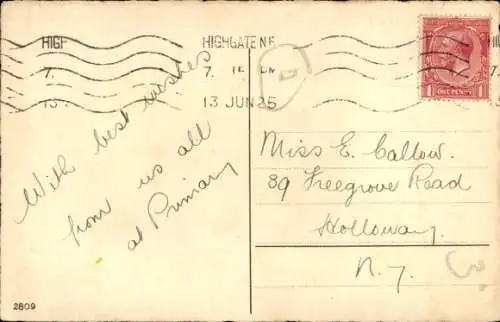 HIGHGATE N6
13 JUN 25
ONE PENNY
With best wishes
from us all
at Primary
Miss E. Callow.
89 Freegrove Road
Holloway.
N. 7.
2809